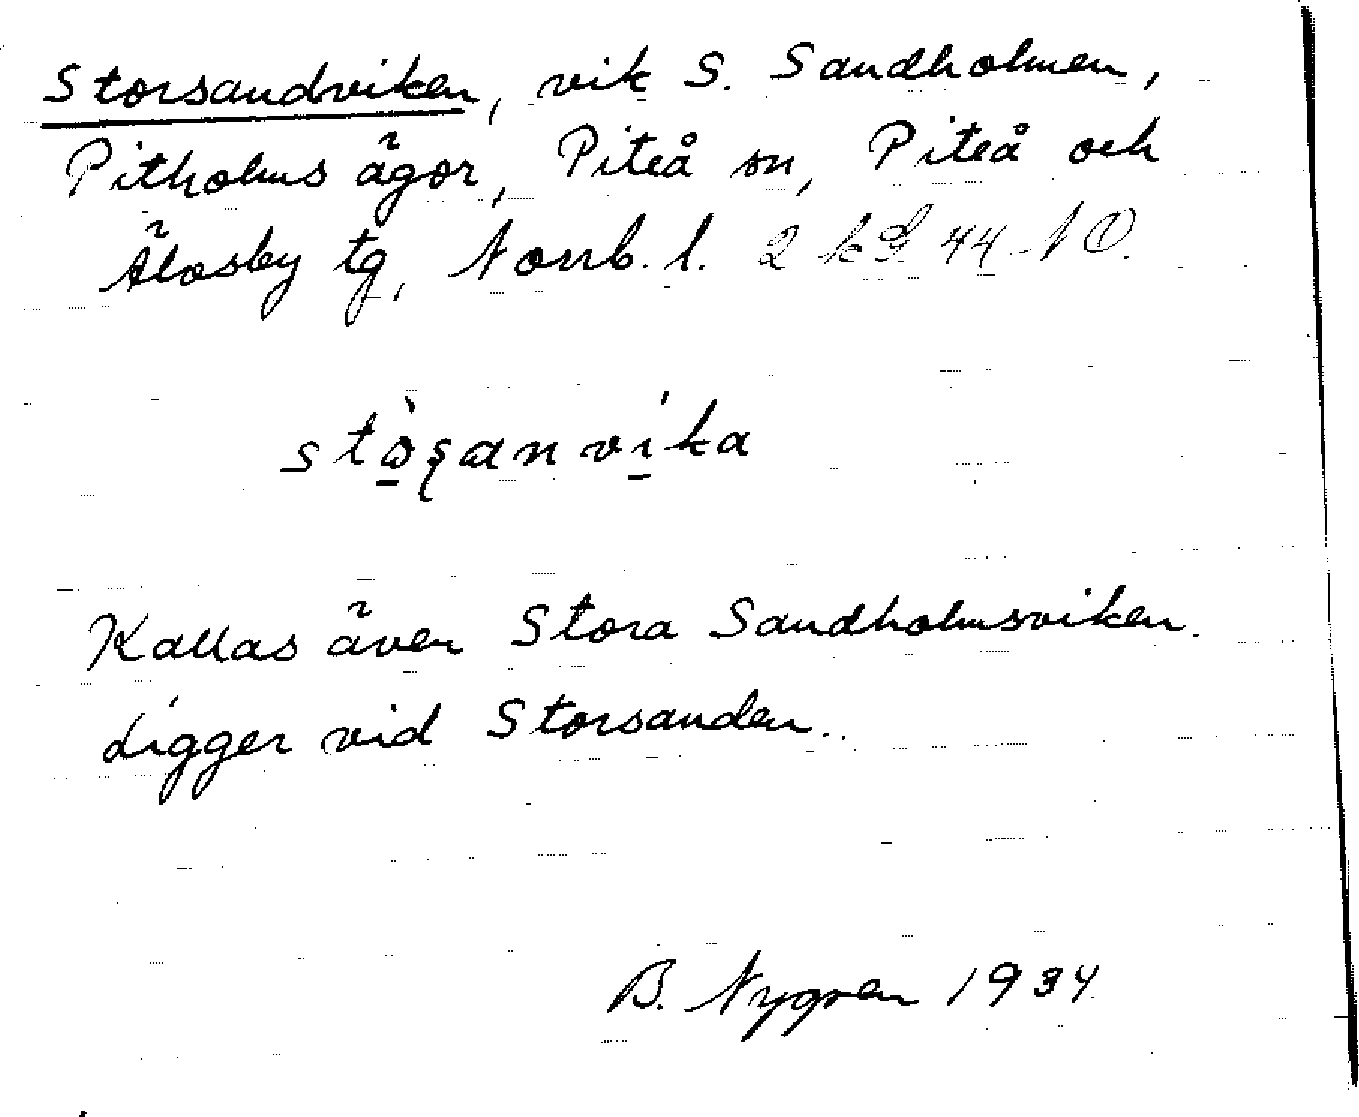 Storsandviken, vik S. Sandholmen,
Pitholms ägor, Piteå sn, Piteå och
Älvsby tg, Norrb. l.
stò̱ʂanvi̱ka
Kallas även Stora Sandholmsviken.
Ligger vid Storsanden.
B. Nygren 1934